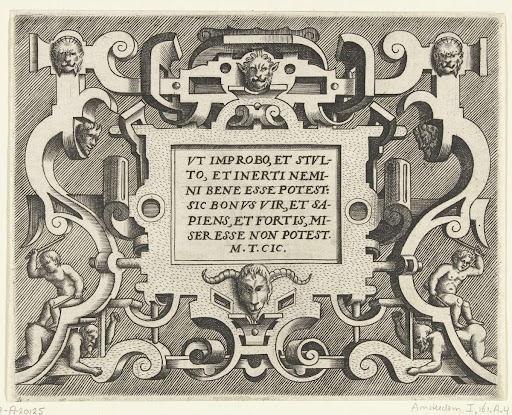 VT IMPROBO, ET STVL-
TO, ET INERTI NEMI-
NI BENE ESSE POTEST:
SIC BONVS VIR, ET SA-
PIENS, ET FORTIS, MI-
SER ESSE NON POTEST.
M. T. CIC.
A-20125
Amsterdam I, 161. A. 4